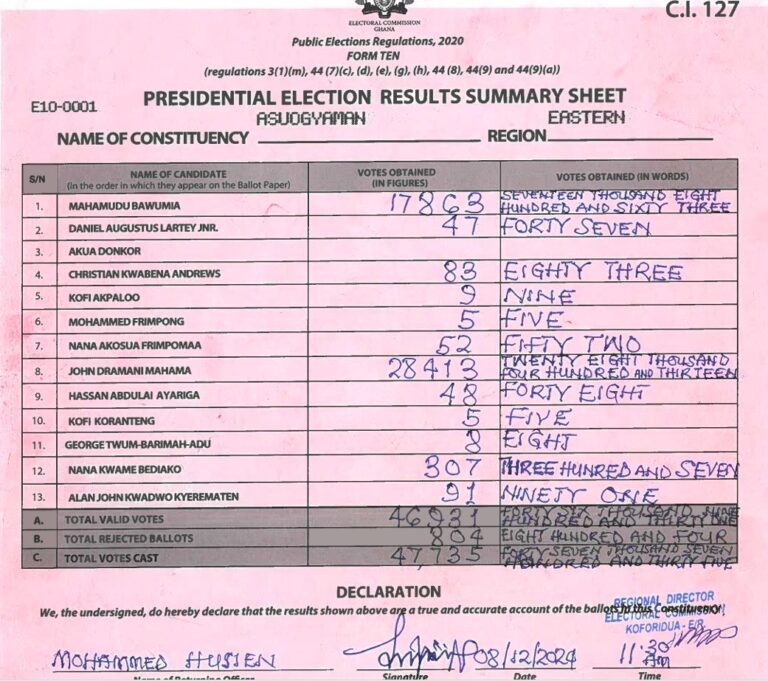 C.I. 127
ELECTORAL COMMISSION
GHANA
Public Elections Regulations, 2020
FORM TEN
(regulations 3(1)(m), 44 (7)(c), (d), (e), (g), (h), 44 (8), 44(9) and 44(9)(a))
E10-0001
PRESIDENTIAL ELECTION RESULTS SUMMARY SHEET
NAME OF CONSTITUENCY ASUOGYAMAN REGION EASTERN
S/N NAME OF CANDIDATE (In the order in which they appear on the Ballot Paper) VOTES OBTAINED (IN FIGURES) VOTES OBTAINED (IN WORDS)
1. MAHAMUDU BAWUMIA 17863 SEVENTEEN THOUSAND EIGHT HUNDRED AND SIXTY THREE
2. DANIEL AUGUSTUS LARTEY JNR. 47 FORTY SEVEN
3. AKUA DONKOR
4. CHRISTIAN KWABENA ANDREWS 83 EIGHTY THREE
5. KOFI AKPALOO 9 NINE
6. MOHAMMED FRIMPONG 5 FIVE
7. NANA AKOSUA FRIMPOMAA 52 FIFTY TWO
8. JOHN DRAMANI MAHAMA 28413 TWENTY EIGHT THOUSAND FOUR HUNDRED AND THIRTEEN
9. HASSAN ABDULAI AYARIGA 48 FORTY EIGHT
10. KOFI KORANTENG 5 FIVE
11. GEORGE TWUM-BARIMAH-ADU 8 EIGHT
12. NANA KWAME BEDIAKO 307 THREE HUNRED AND SEVEN
13. ALAN JOHN KWADWO KYEREMATEN 91 NINETY ONE
A. TOTAL VALID VOTES 46931 FORTY SIX THOUSAND NINE HUNDRED AND THIRTY ONE
B. TOTAL REJECTED BALLOTS 804 EIGHT HUNDRED AND FOUR
C. TOTAL VOTES CAST 47,735 FORTY SEVEN THOUSAND SEVEN HUNDRED AND THIRTY FIVE
DECLARATION
We, the undersigned, do hereby declare that the results shown above are a true and accurate account of the ballots in this Constituency.
REGIONAL DIRECTOR
ELECTORAL COMMISSION
KOFORIDUA - E/R
MOHAMMED HUSIEN 08/12/2024 11:30 AM
Name of Returning Officer Signature Date Time